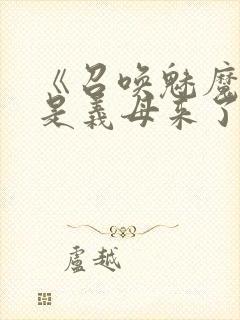 《召唤魅魔
是義母来了
盧越